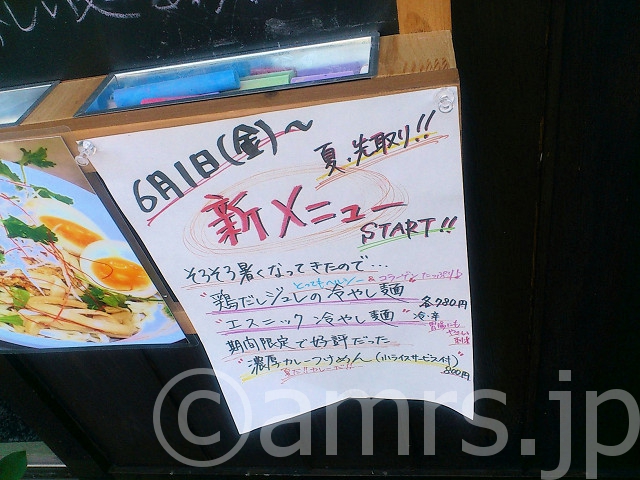 6月1日(金)〜
夏、先取り!!
新メニュー
START!!
そろそろ暑くなってきたので…
とってもヘルシー & コラーゲンたっぷり♪
"鶏だしジュレの冷やし麺 各780円
"エスニック冷やし麺" 冷・辛
胃腸にもやさしい
期間限定で好評だった
"濃厚カレーつけめん(小ライスサービス付)"
夏だ!!カレーだ!! 860円
©amrs.jp